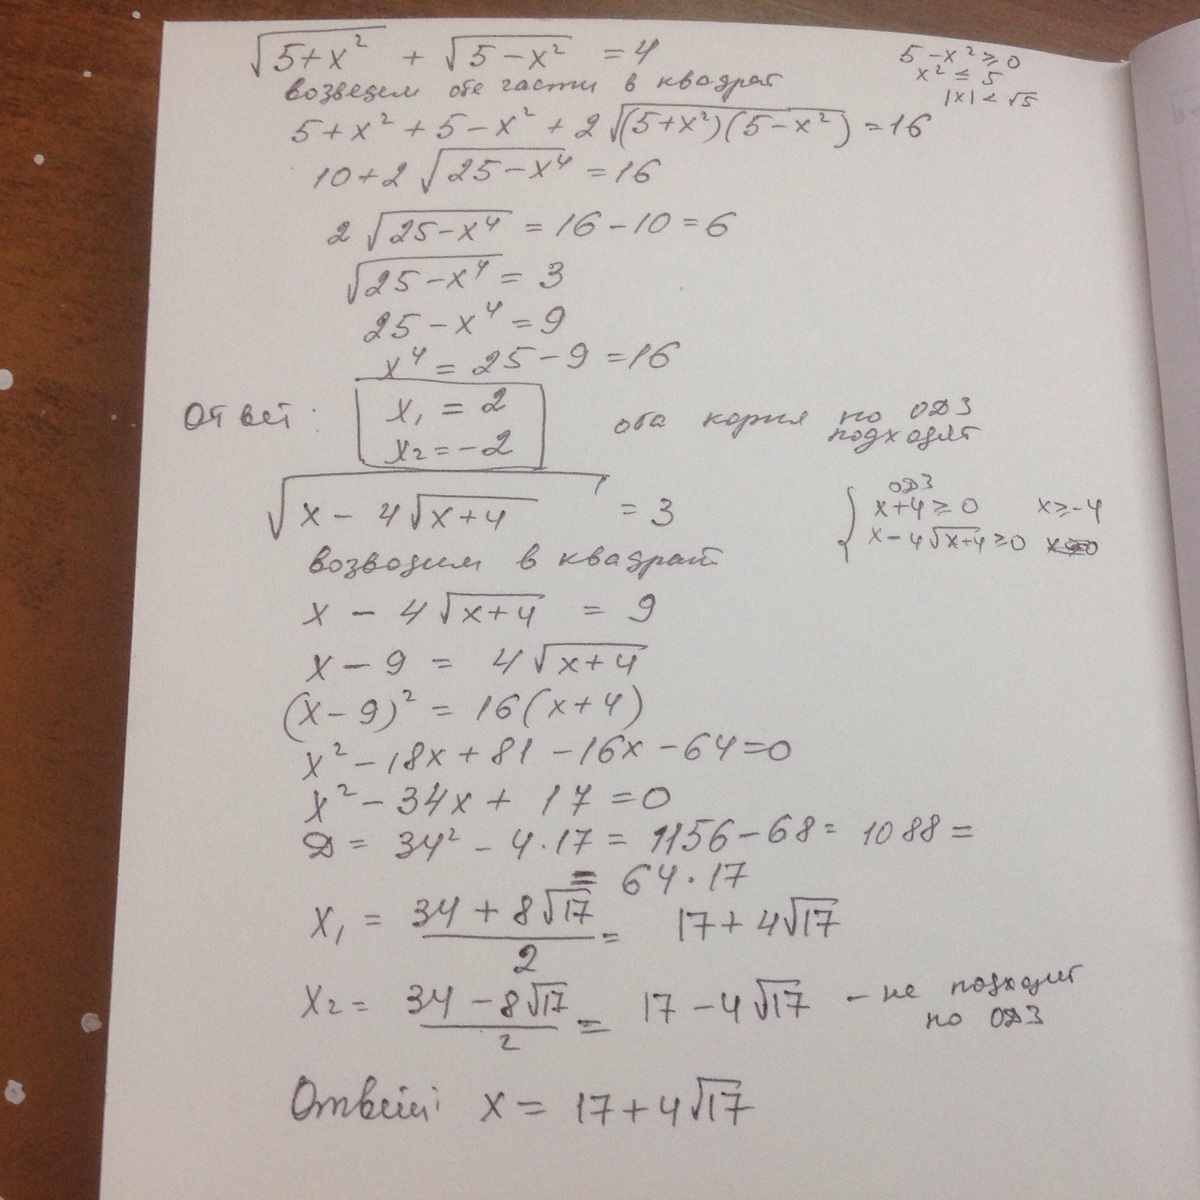 √(5+x²) + √(5−x²) = 4
5−x² ≥ 0
x² ≤ 5
|x| < √5
возведем обе части в квадрат
5+x²+5−x²+2√((5+x²)(5−x²)) = 16
10+2√(25−x⁴) = 16
2√(25−x⁴) = 16−10 = 6
√(25−x⁴) = 3
25−x⁴ = 9
x⁴ = 25−9 = 16
Ответ: x₁ = 2
x₂ = −2
оба корня по ОДЗ
подходят
√(x − 4√(x+4)) = 3
ОДЗ
{ x+4 ≥ 0 x ≥ −4
x−4√(x+4) ≥ 0
возводим в квадрат
x − 4√(x+4) = 9
x − 9 = 4√(x+4)
(x−9)² = 16(x+4)
x²−18x+81−16x−64=0
x²−34x+17=0
Д = 34²−4·17 = 1156−68 = 1088 =
= 64·17
x₁ = (34+8√17)/2 = 17+4√17
x₂ = (34−8√17)/2 = 17−4√17 – не подходит
по ОДЗ
Ответ: x = 17+4√17